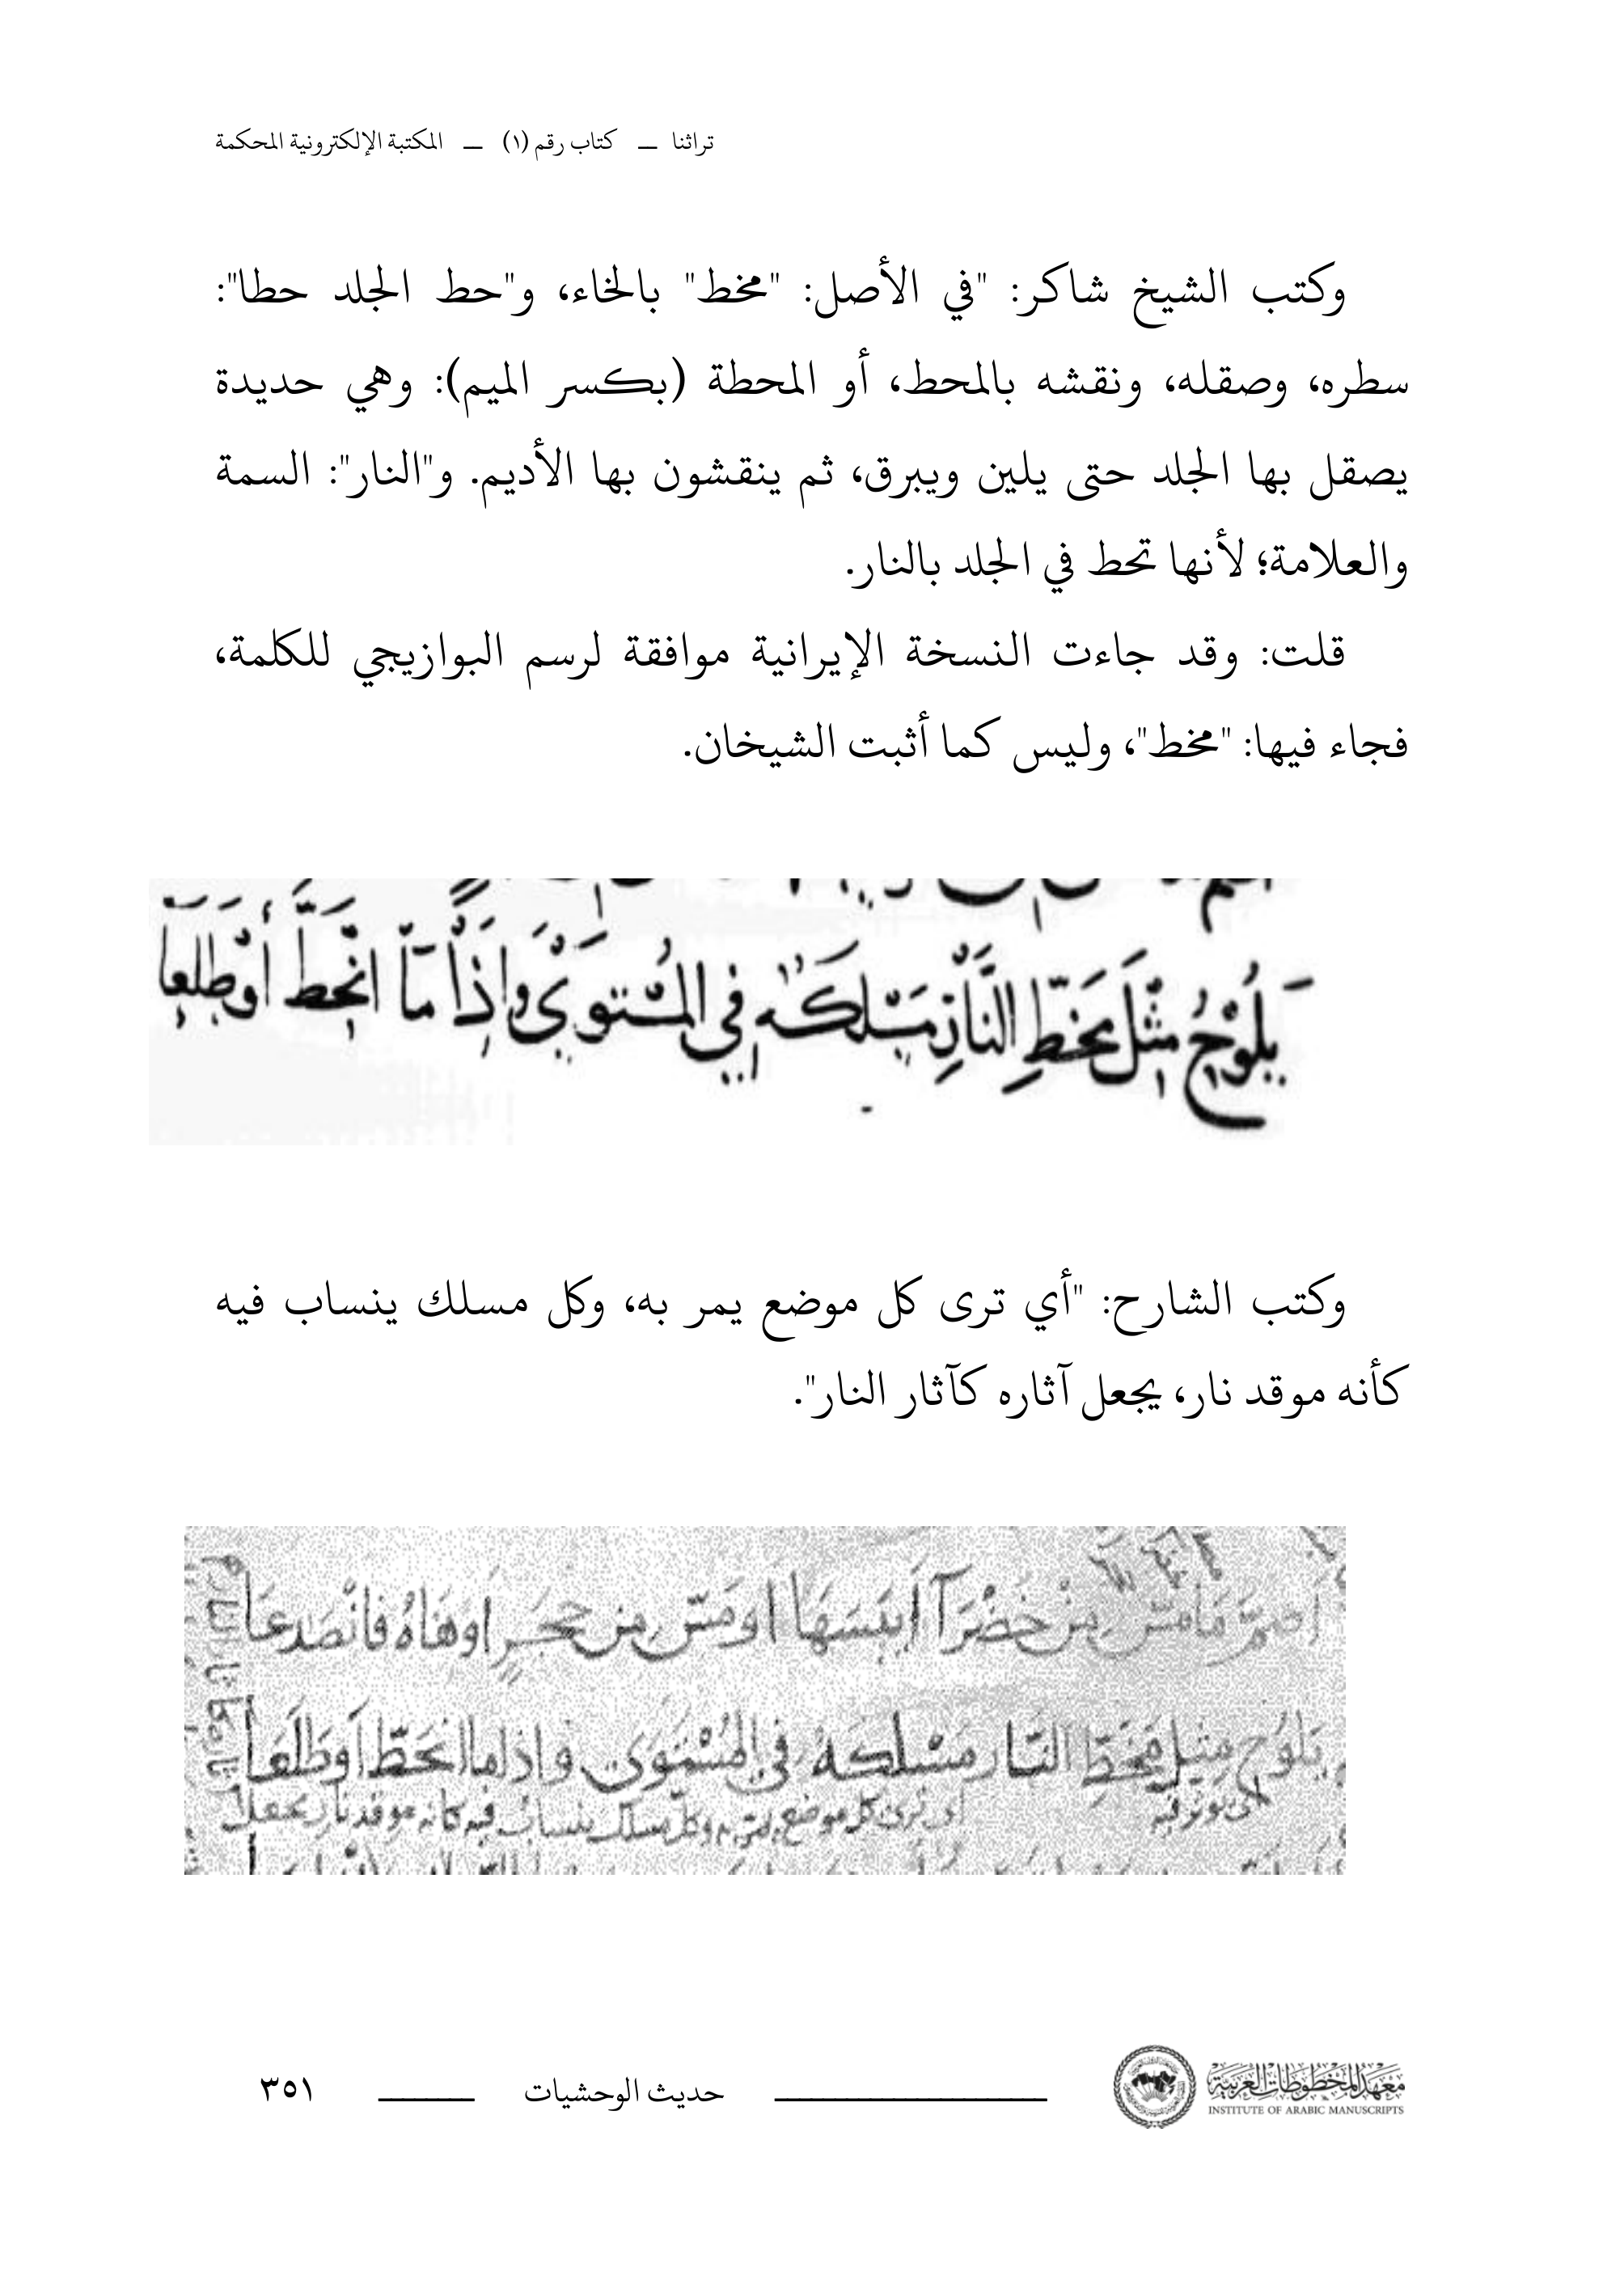 تراثنا — كتاب رقم (١) — المكتبة الإلكترونية المحكمة
وكتب الشيخ شاكر: "في الأصل: "مخط" بالخاء، و"حط الجلد حطا":
سطره، وصقله، ونقشه بالمحط، أو المحطة (بكسر الميم): وهي حديدة
يصقل بها الجلد حتى يلين ويبرق، ثم ينقشون بها الأديم. و"النار": السمة
والعلامة؛ لأنها تحط في الجلد بالنار.
قلت: وقد جاءت النسخة الإيرانية موافقة لرسم البوازيجي للكلمة،
فجاء فيها: "مخط"، وليس كما أثبت الشيخان.
يَلُوْحُ مثْلَ مخَطِّ النَّارِ مَسْلكَهُ في المُسْتوىْ وإِذَا مَا انْحَطَّ أَوْ طَلعا
وكتب الشارح: "أي ترى كل موضع يمر به، وكل مسلك ينساب فيه
كأنه موقد نار، يجعل آثاره كآثار النار".
اصمّ مَا مسّ مِنْ خَضْرَآ اَيْبَسَهَا او مَسّ مِن حَجَرٍ اوهَاهُ فانْصَدعَا
يَلوُح مِثِل مَخَطِّ النّار مَسْلكَهُ في المُسْتَوَى واذا ما انحَطّ اَوطَلَعَا
اى يوثر فيه اى ترى كل موضع يمرّ به وكلّ مسلك ينساب فيه كانه موقد نار يجعل
معهد المخطوطات العربية
INSTITUTE OF ARABIC MANUSCRIPTS
حديث الوحشيات
٣٥١